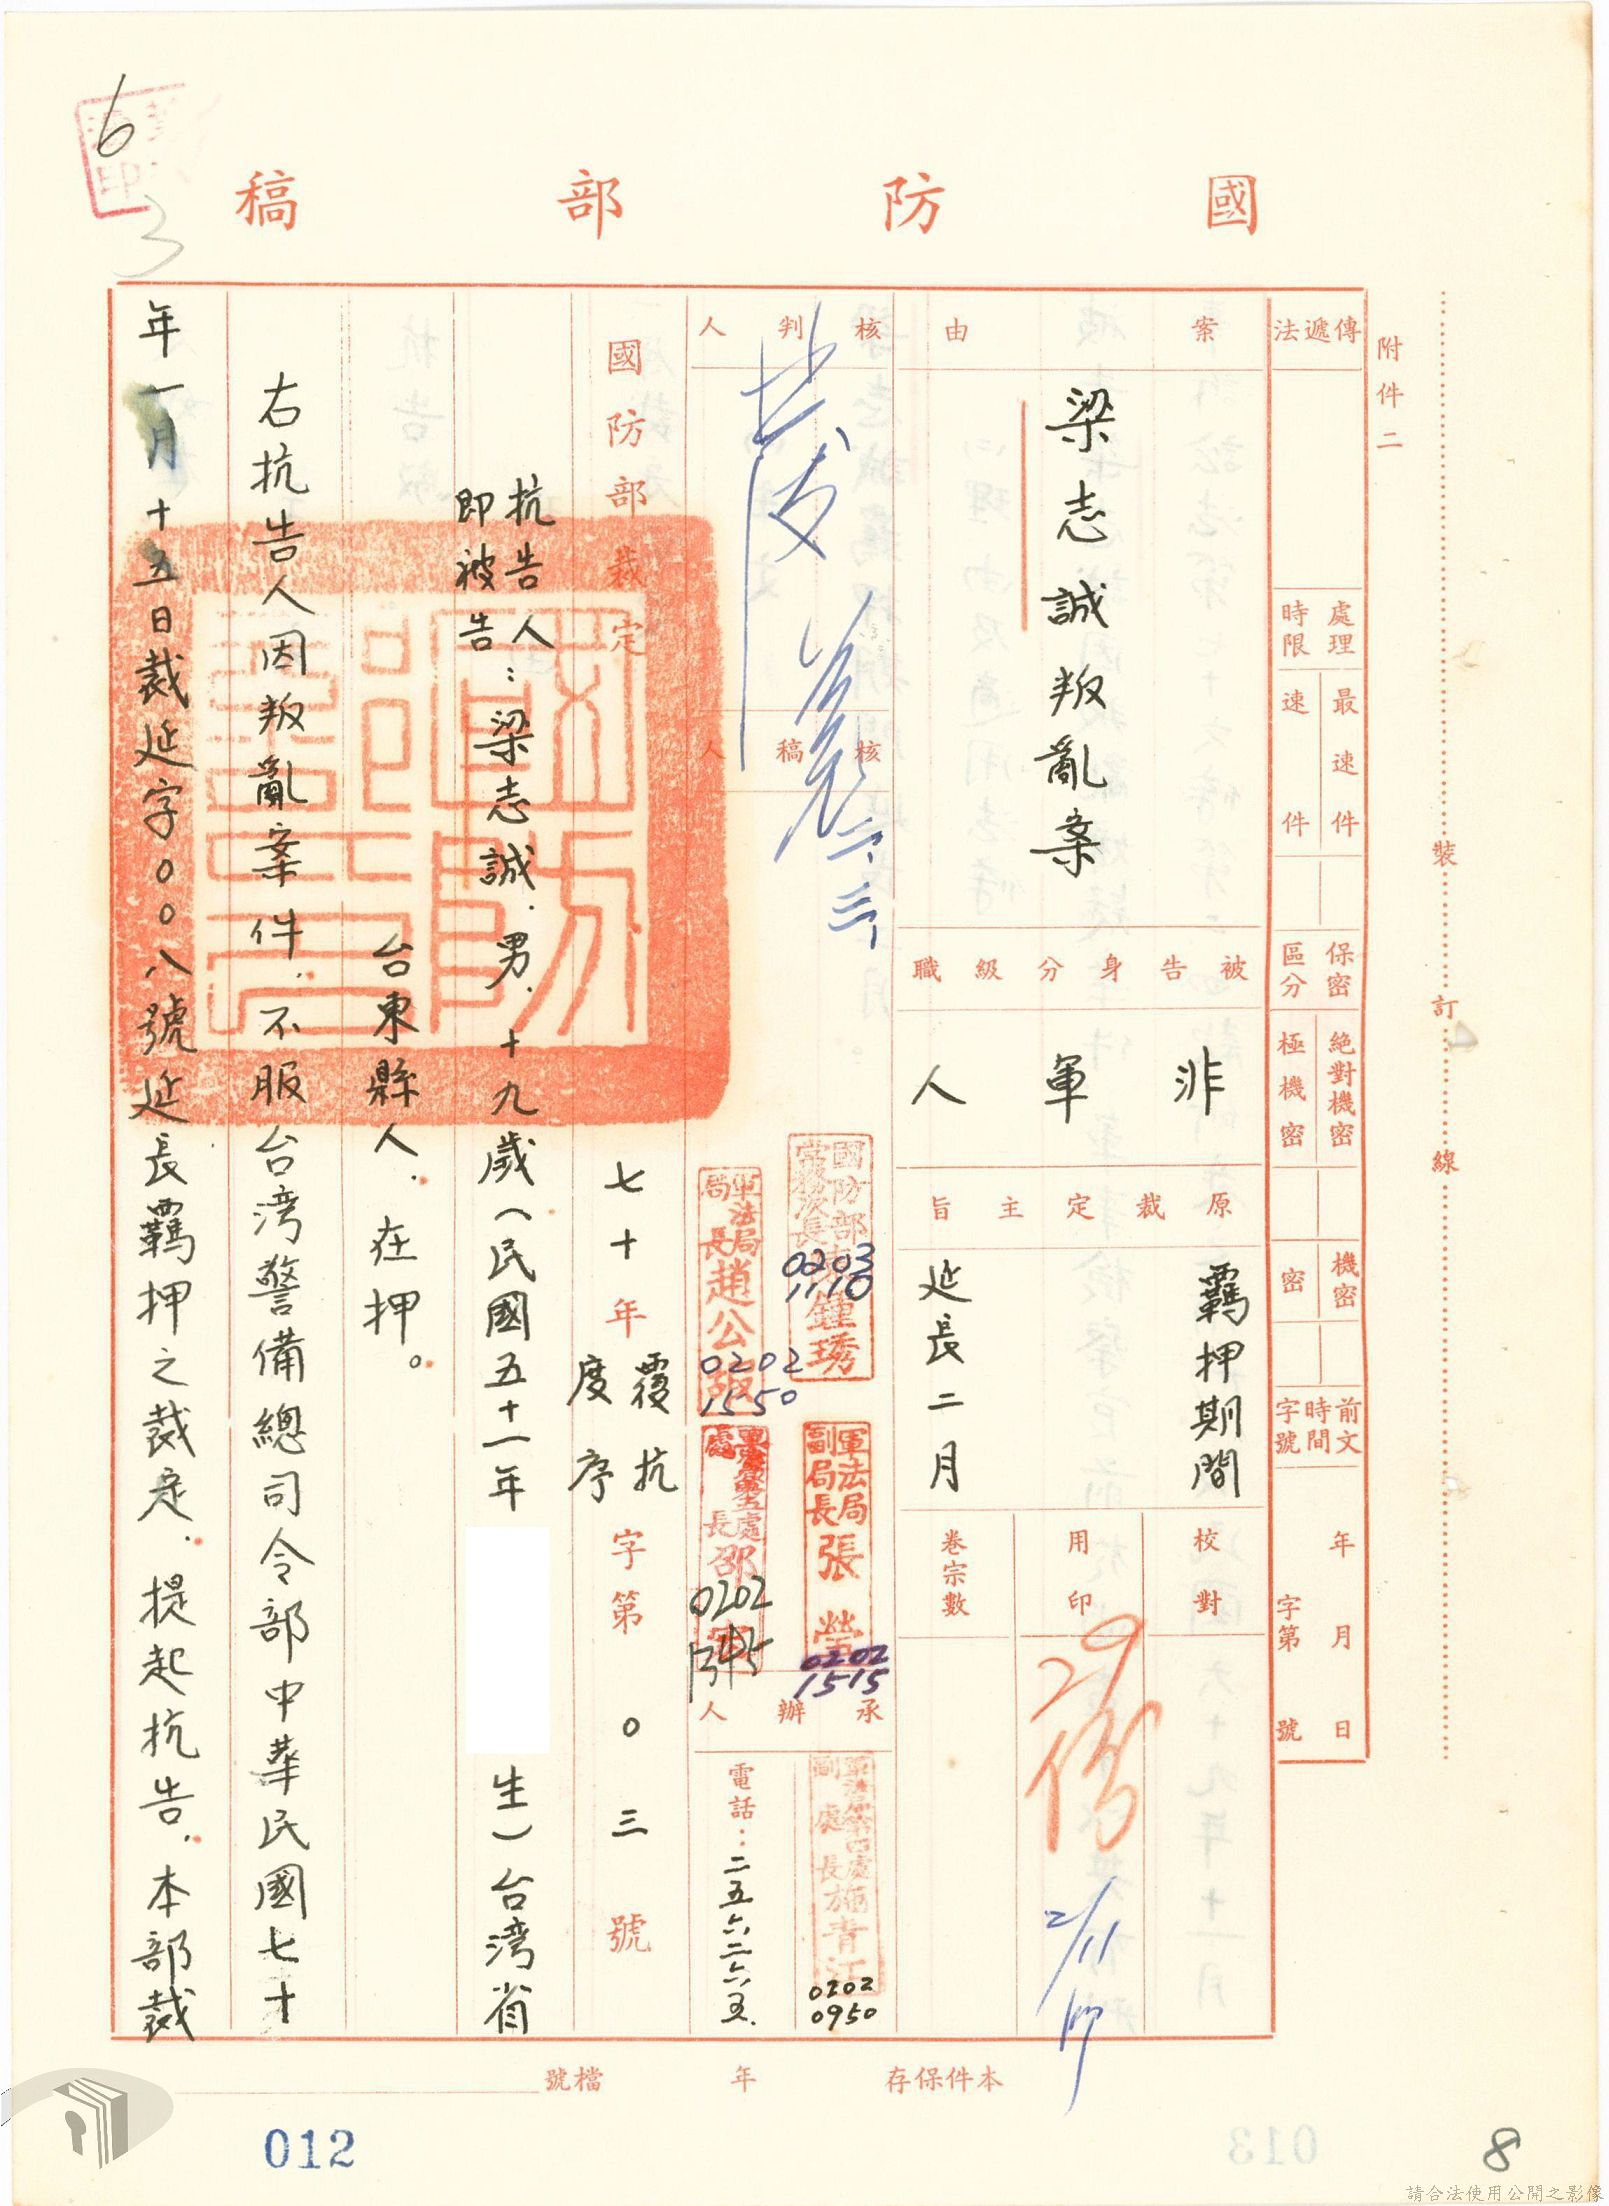 國防部稿
附件二
裝訂線
傳遞法
處理時限
最速件
速件
保密區分
絕對機密
極機密
機密
密
前文時間字號
年月日
字第號
案由
梁志誠叛亂案
被告身分級職
非軍人
原裁定主旨
羈押期間
延長二月
校對
用印
2/11
卷宗數
核判人
二、三、
核稿人
國防部常務次長陳鍾琇
0203
1110
軍法局局長趙公嘏
0202
1550
軍法局副局長張瑩
0202
1515
處長邵
0202
承辦人
副處長施青江
0202
0950
電話：二五六二六五
國防部裁定
七十年度覆抗序字第〇三號
抗告人
即被告：梁志誠．男．十九歲（民國五十一年
生）台湾省
台東縣人．在押。
右抗告人因叛亂案件．不服台湾警備總司令部中華民國七十
年一月十五日裁延字〇〇八號延長羈押之裁定．提起抗告．本部裁
本件保存年
檔號
6
3
012
013
8
請合法使用公開之影像